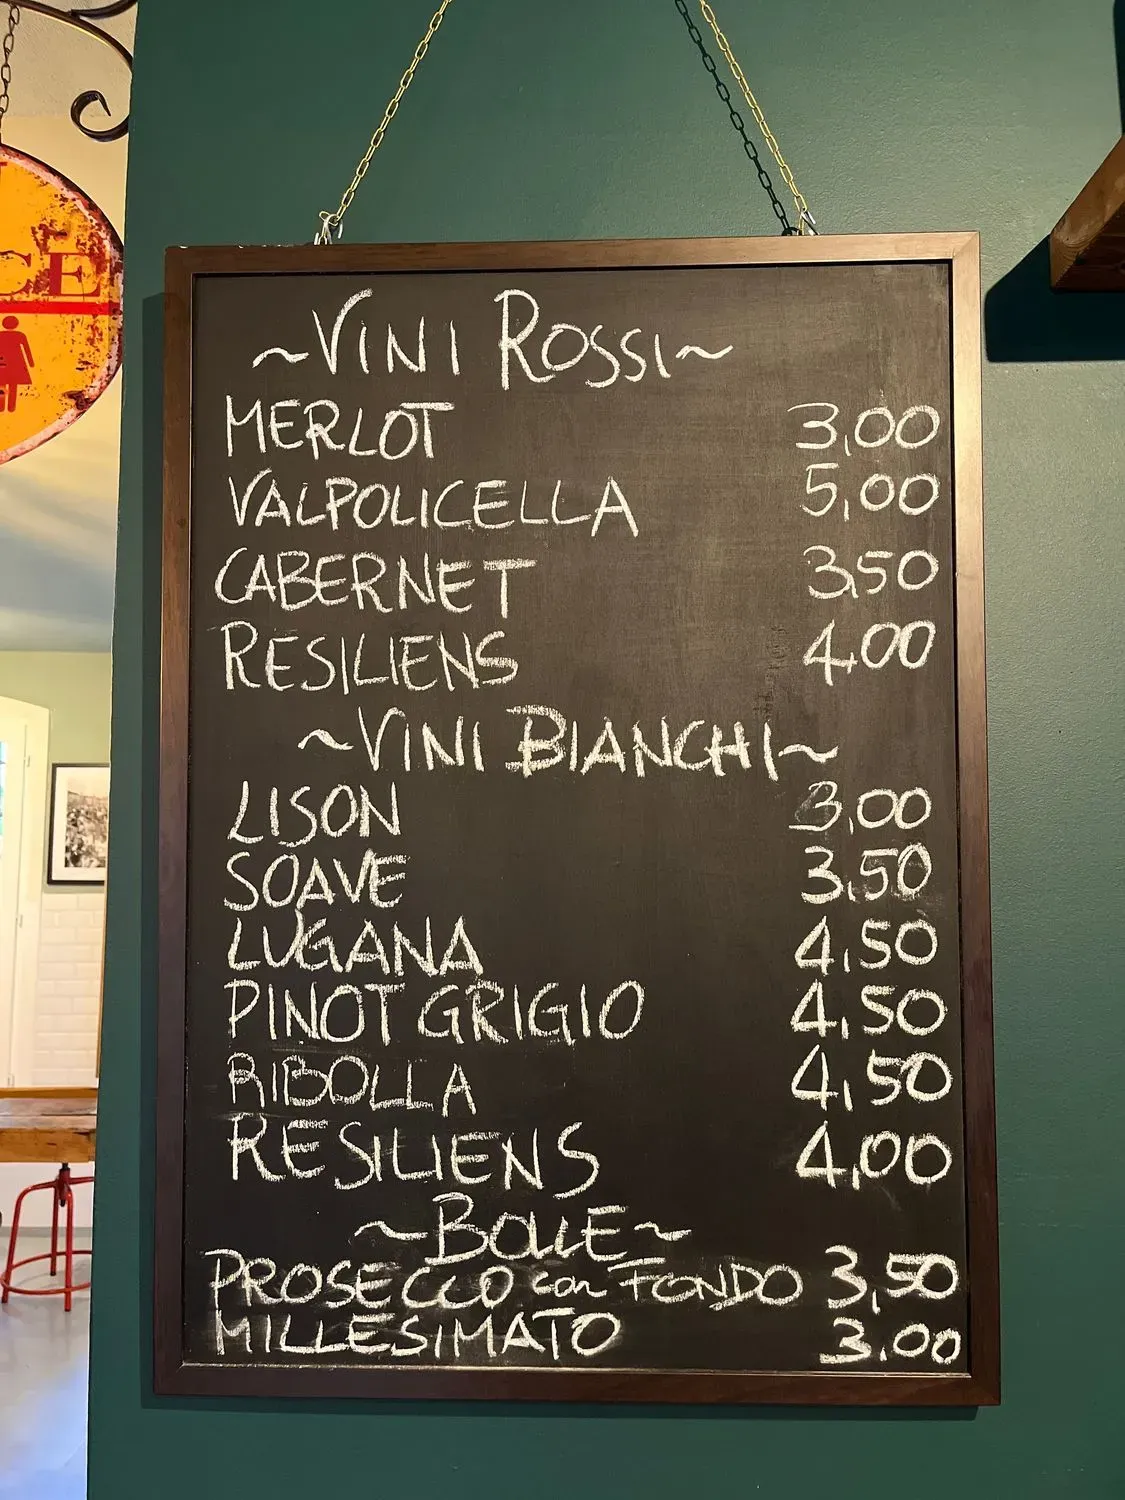 CE
~VINI ROSSI~
MERLOT 3,00
VALPOLICELLA 5,00
CABERNET 3,50
RESILIENS 4,00
~VINI BIANCHI~
LISON 3,00
SOAVE 3,50
LUGANA 4,50
PINOT GRIGIO 4,50
RIBOLLA 4,50
RESILIENS 4,00
~BOLLE~
PROSECCO con FONDO 3,50
MILLESIMATO 3.00